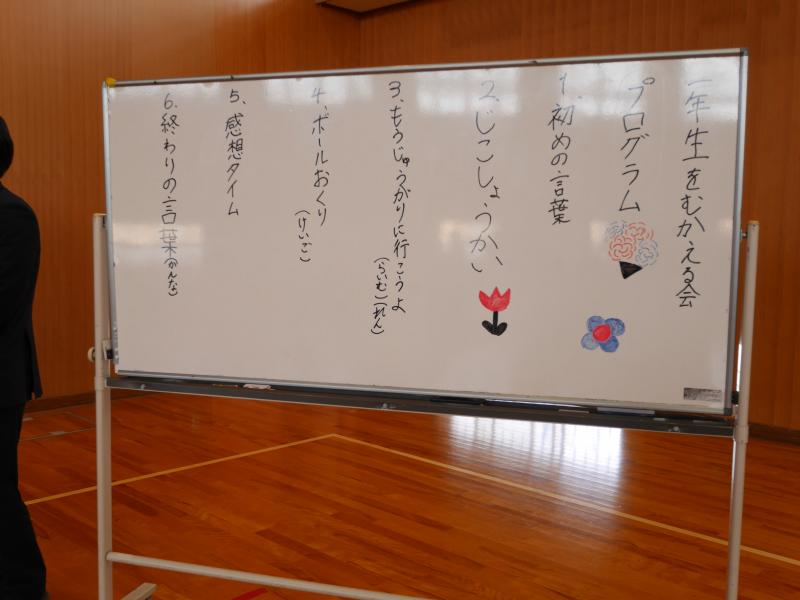 一年生をむかえる会
プログラム
1、初めの言葉
2、じこしょうかい
3、もうじゅうがりに行こうよ
(らいむ)(れん)
4、ボールおくり
(けいご)
5、感想タイム
6、終わりの言葉(かんな)